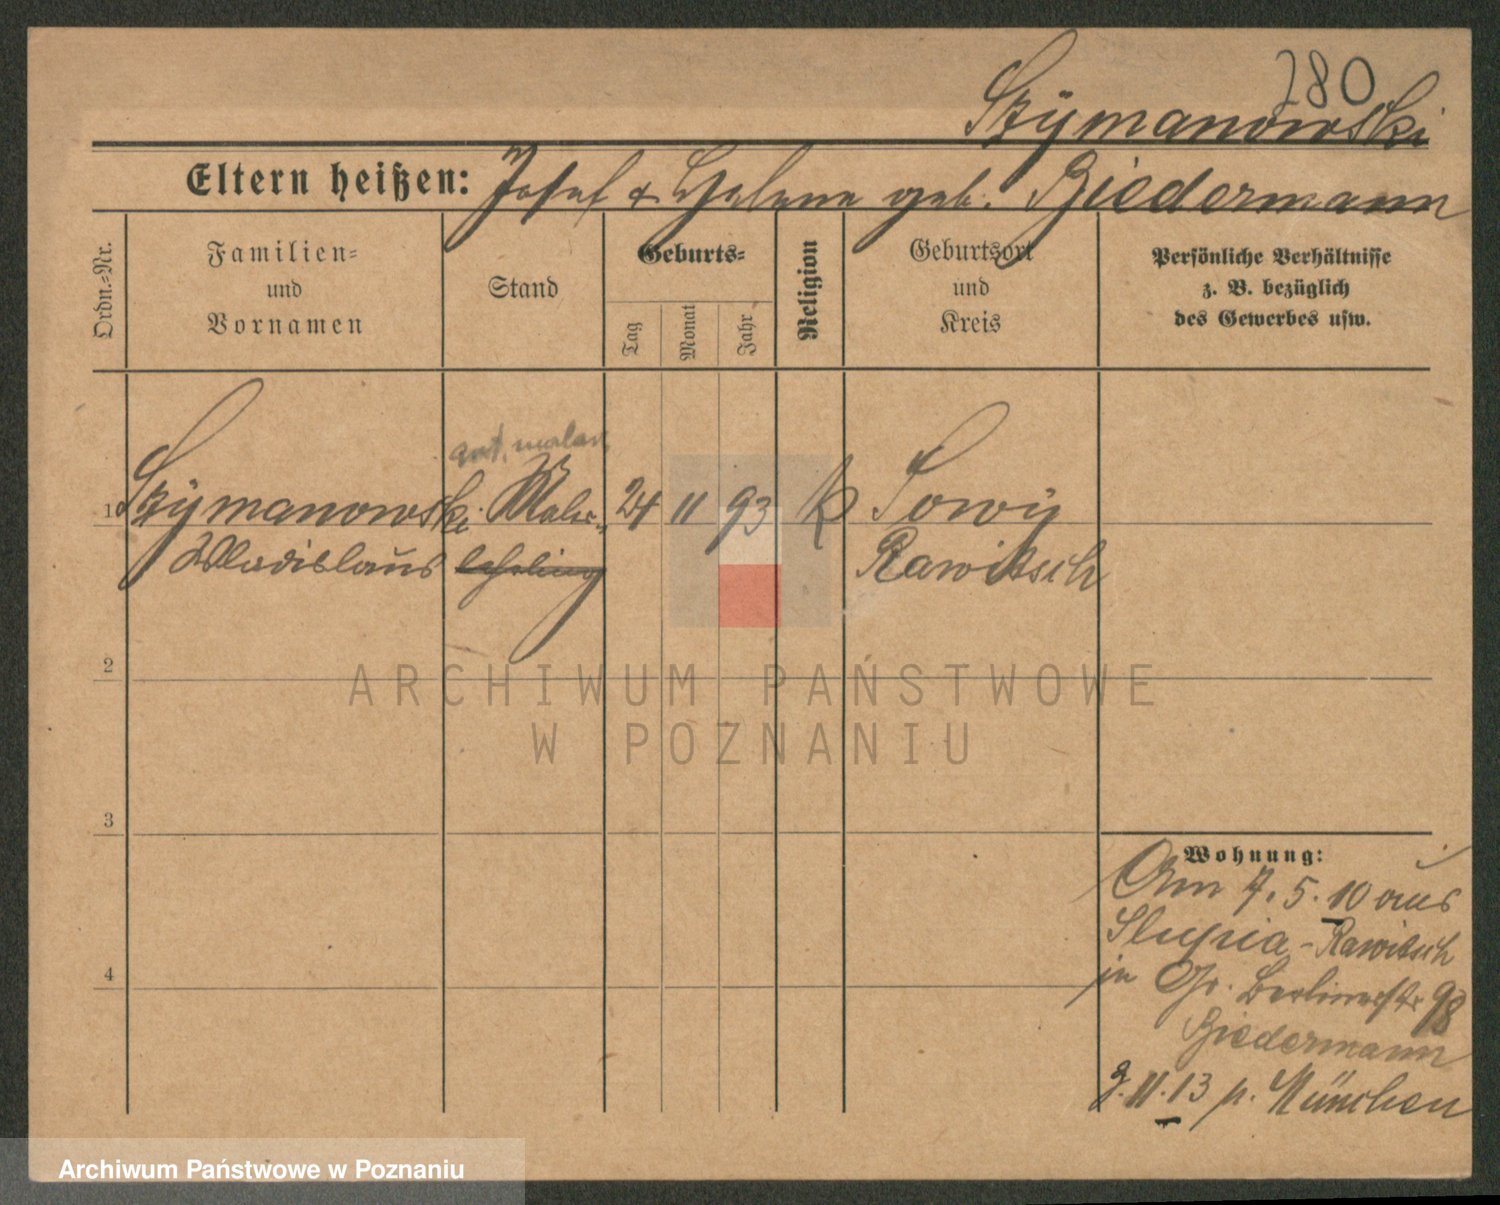 280
Szymanowski
Eltern heißen: Josef & Helene geb. Biedermann
Ordn.-Nr.
Familien-
und
Vornamen
Stand
Geburts-
Tag
Monat
Jahr
Religion
Geburtsort
und
Kreis
Persönliche Verhältnisse
z. B. bezüglich
des Gewerbes usw.
maler
1 Szymanowski Maler- 24 11 93 k Sowy
Wladislaus lehrling Rawitsch
2
3
4
ARCHIWUM PAŃSTWOWE
W POZNANIU
Wohnung:
Am 7.5.10 aus
Slupia-Rawitsch
in Gr. Berlinerstr 98
Biedermann
9.11.13 n. München
Archiwum Państwowe w Poznaniu